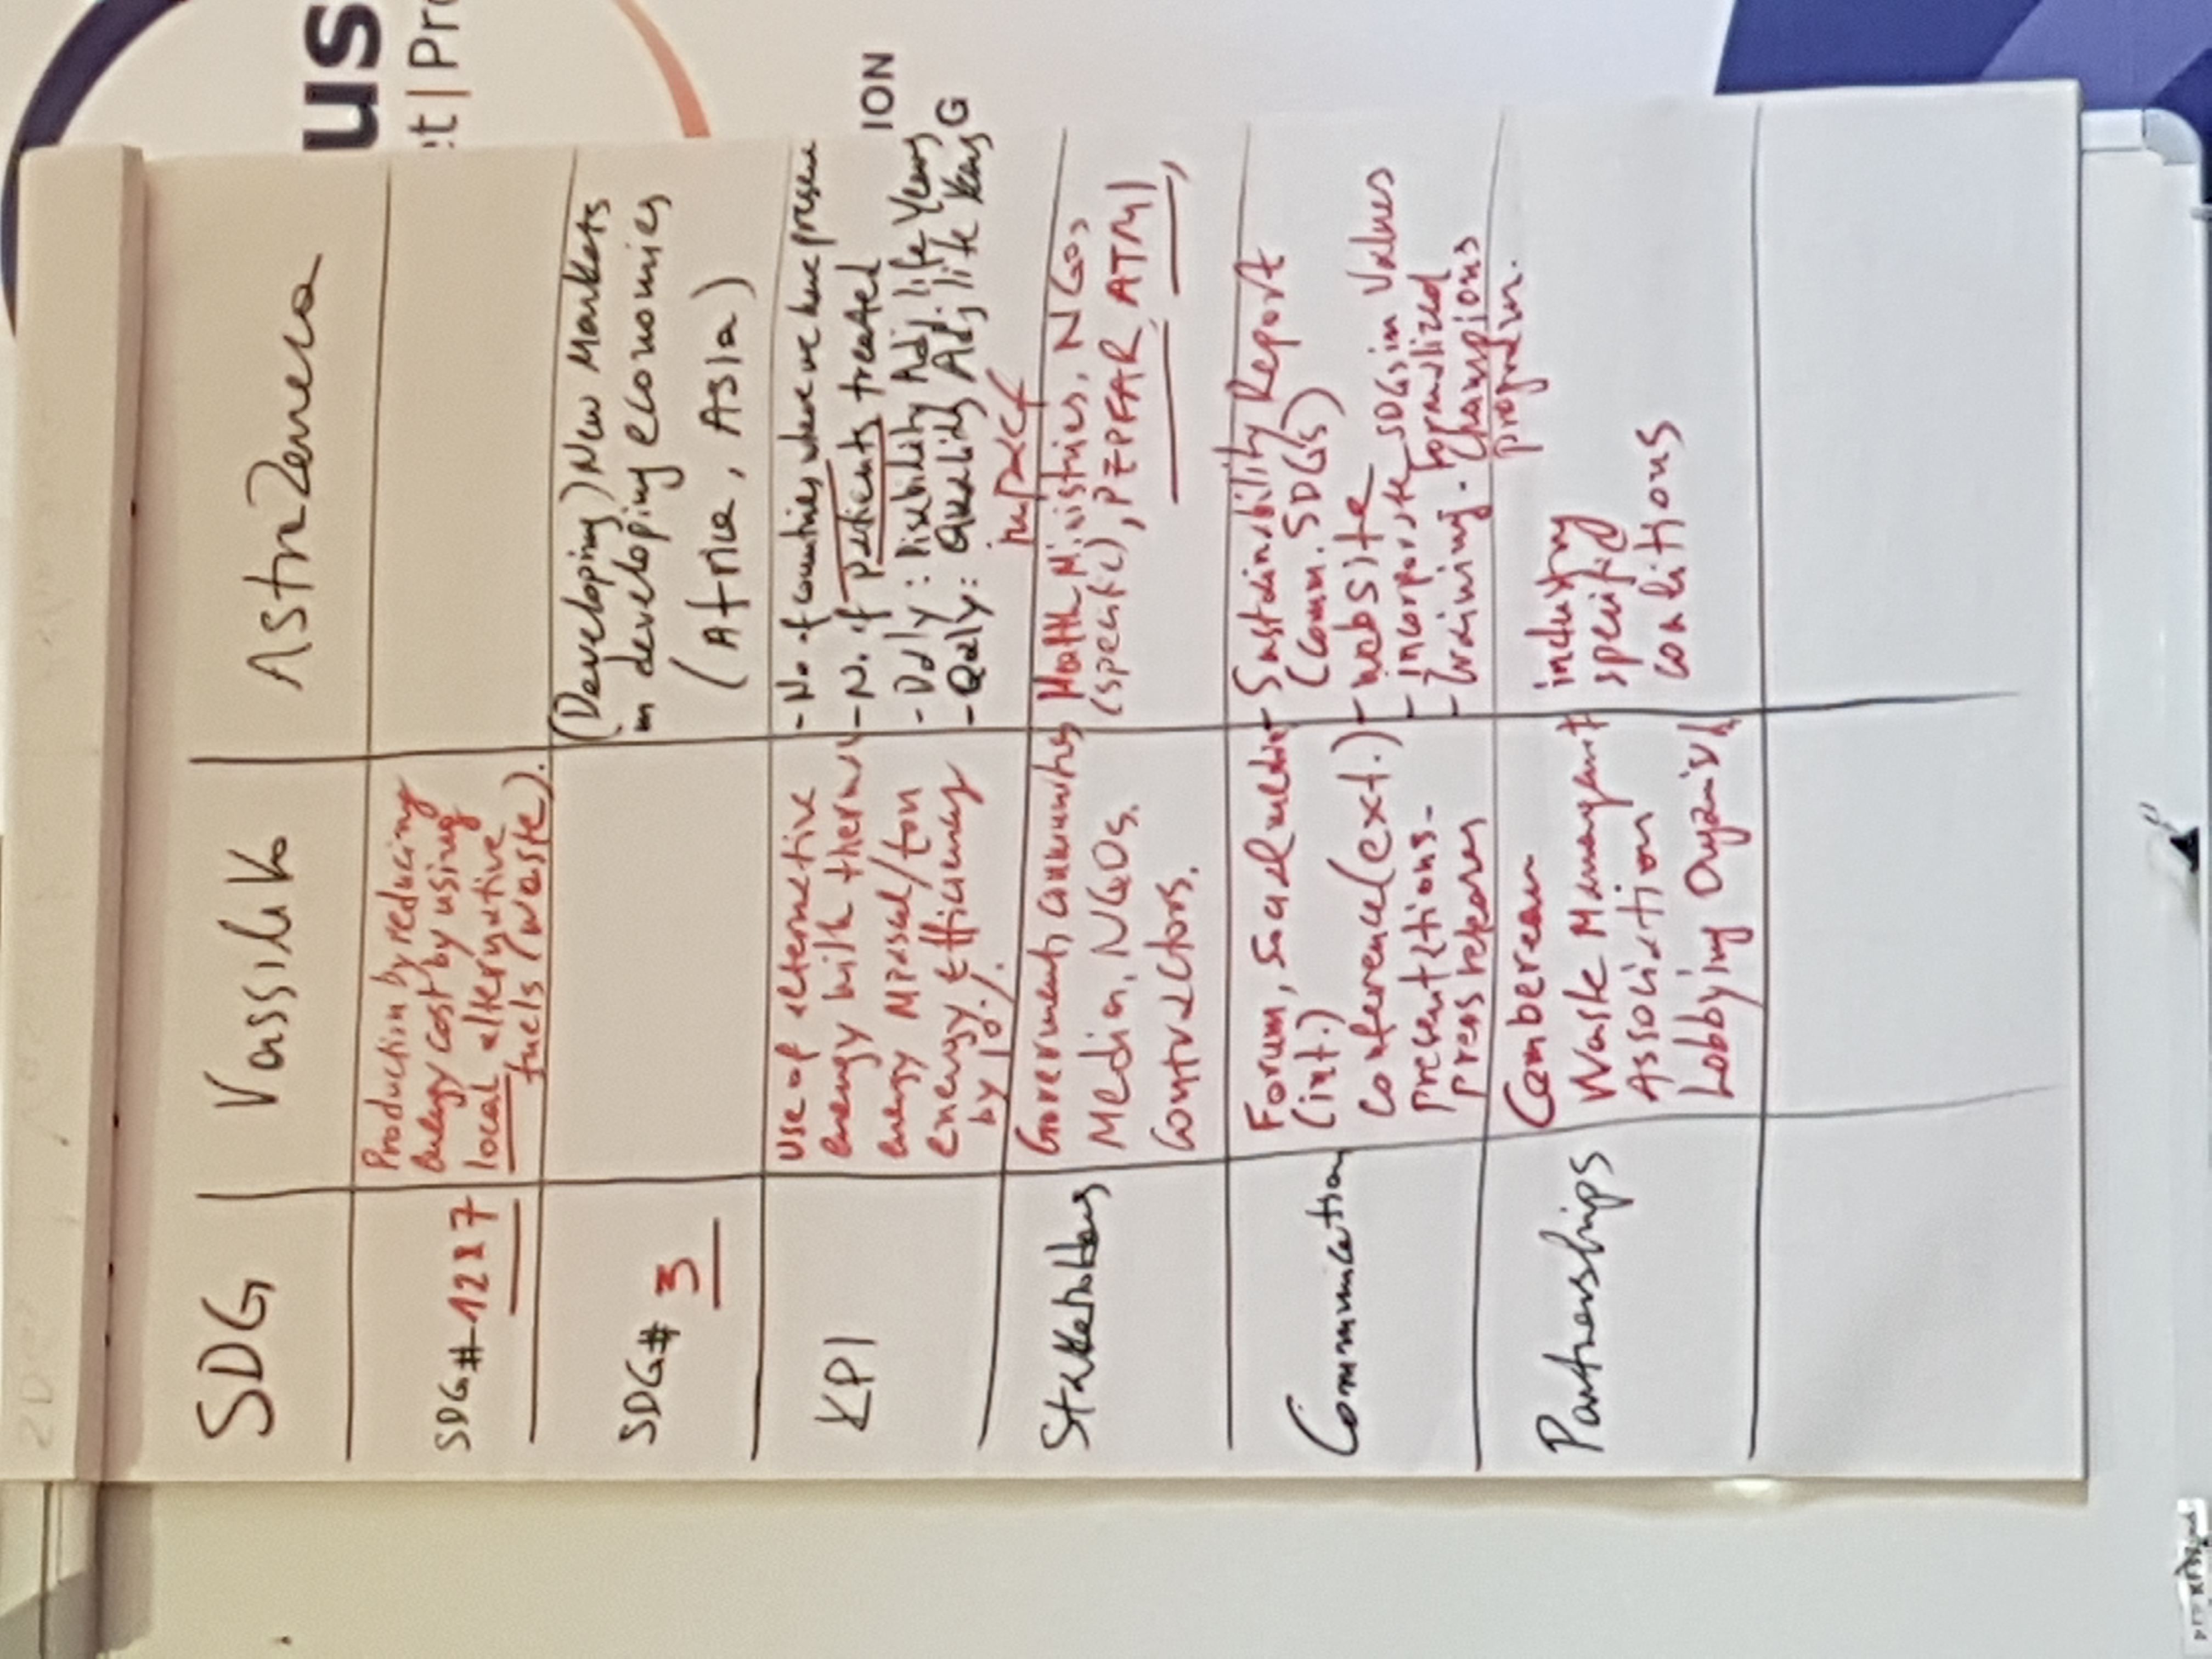 us
et | Pro
ION
G
SDG
Vassiliko
AstraZeneca
SDG# 12 & 7
Production by reducing
energy cost by using
local alternative
fuels (waste).
SDG# 3
(Developing) New Markets
in developing economies
(Africa, Asia)
KPI
Use of alternative
energy with
energy
energy efficiency
by 10%
- No of countries where we have presence
- No. of patients treated
- Daly: Disability Adj. life Years
- Qaly: Quality Adj. life Years
impact
Stakeholders
Government, communities
Media, NGOs.
Contractors.
Health Ministries, NGOs
(specific), PEPFAR, ATM,
Communication
Forum, Social media
(int.)
Conference (ext.)
presentations-
press releases
- Sustainability Report
(Comm. SDGs)
- website
- incorporate SDGs in Values
- training. formalized
champions
program.
Partnerships
Cembereau
Waste Management
Association
Lobbying
industry
specific
coalitions